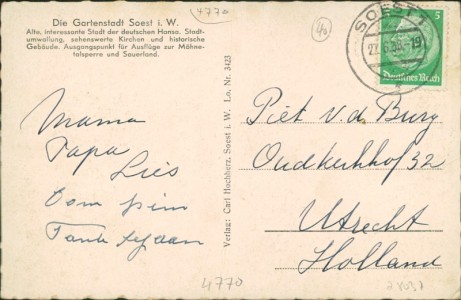 4770
40
Die Gartenstadt Soest i. W.
Alte, interessante Stadt der deutschen Hansa. Stadt-
umwallung, sehenswerte Kirchen und historische
Gebäude. Ausgangspunkt für Ausflüge zur Möhne-
talsperre und Sauerland.
SOEST
5
Deutsches Reich
Mama
Papa
Lies
Oom Pim
Tante
Verlag: Carl Hochherz, Soest i. W. Lo. Nr. 3423
Piet v.d. Burg
Oudkerkhof 32
Utrecht
Holland
4770